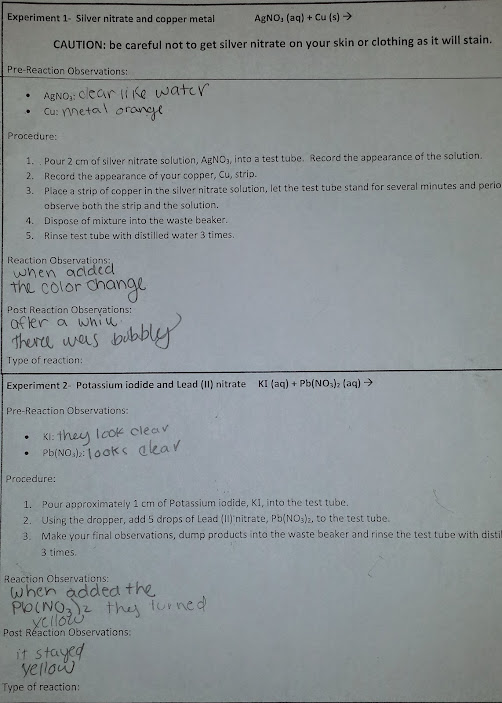 Experiment 1- Silver nitrate and copper metal AgNO₃ (aq) + Cu (s) →
CAUTION: be careful not to get silver nitrate on your skin or clothing as it will stain.
Pre-Reaction Observations:
• AgNO₃: clear like water
• Cu: metal orange
Procedure:
1. Pour 2 cm of silver nitrate solution, AgNO₃, into a test tube. Record the appearance of the solution.
2. Record the appearance of your copper, Cu, strip.
3. Place a strip of copper in the silver nitrate solution, let the test tube stand for several minutes and perio
observe both the strip and the solution.
4. Dispose of mixture into the waste beaker.
5. Rinse test tube with distilled water 3 times.
Reaction Observations:
when added
the color change
Post Reaction Observations:
after a while
there was bubbly
Type of reaction:
Experiment 2- Potassium iodide and Lead (II) nitrate KI (aq) + Pb(NO₃)₂ (aq) →
Pre-Reaction Observations:
• KI: they look clear
• Pb(NO₃)₂: looks clear
Procedure:
1. Pour approximately 1 cm of Potassium iodide, KI, into the test tube.
2. Using the dropper, add 5 drops of Lead (II) nitrate, Pb(NO₃)₂, to the test tube.
3. Make your final observations, dump products into the waste beaker and rinse the test tube with distil
3 times.
Reaction Observations:
when added the
Pb(NO₃)2 they turned
yellow
Post Reaction Observations:
it stayed
yellow
Type of reaction: